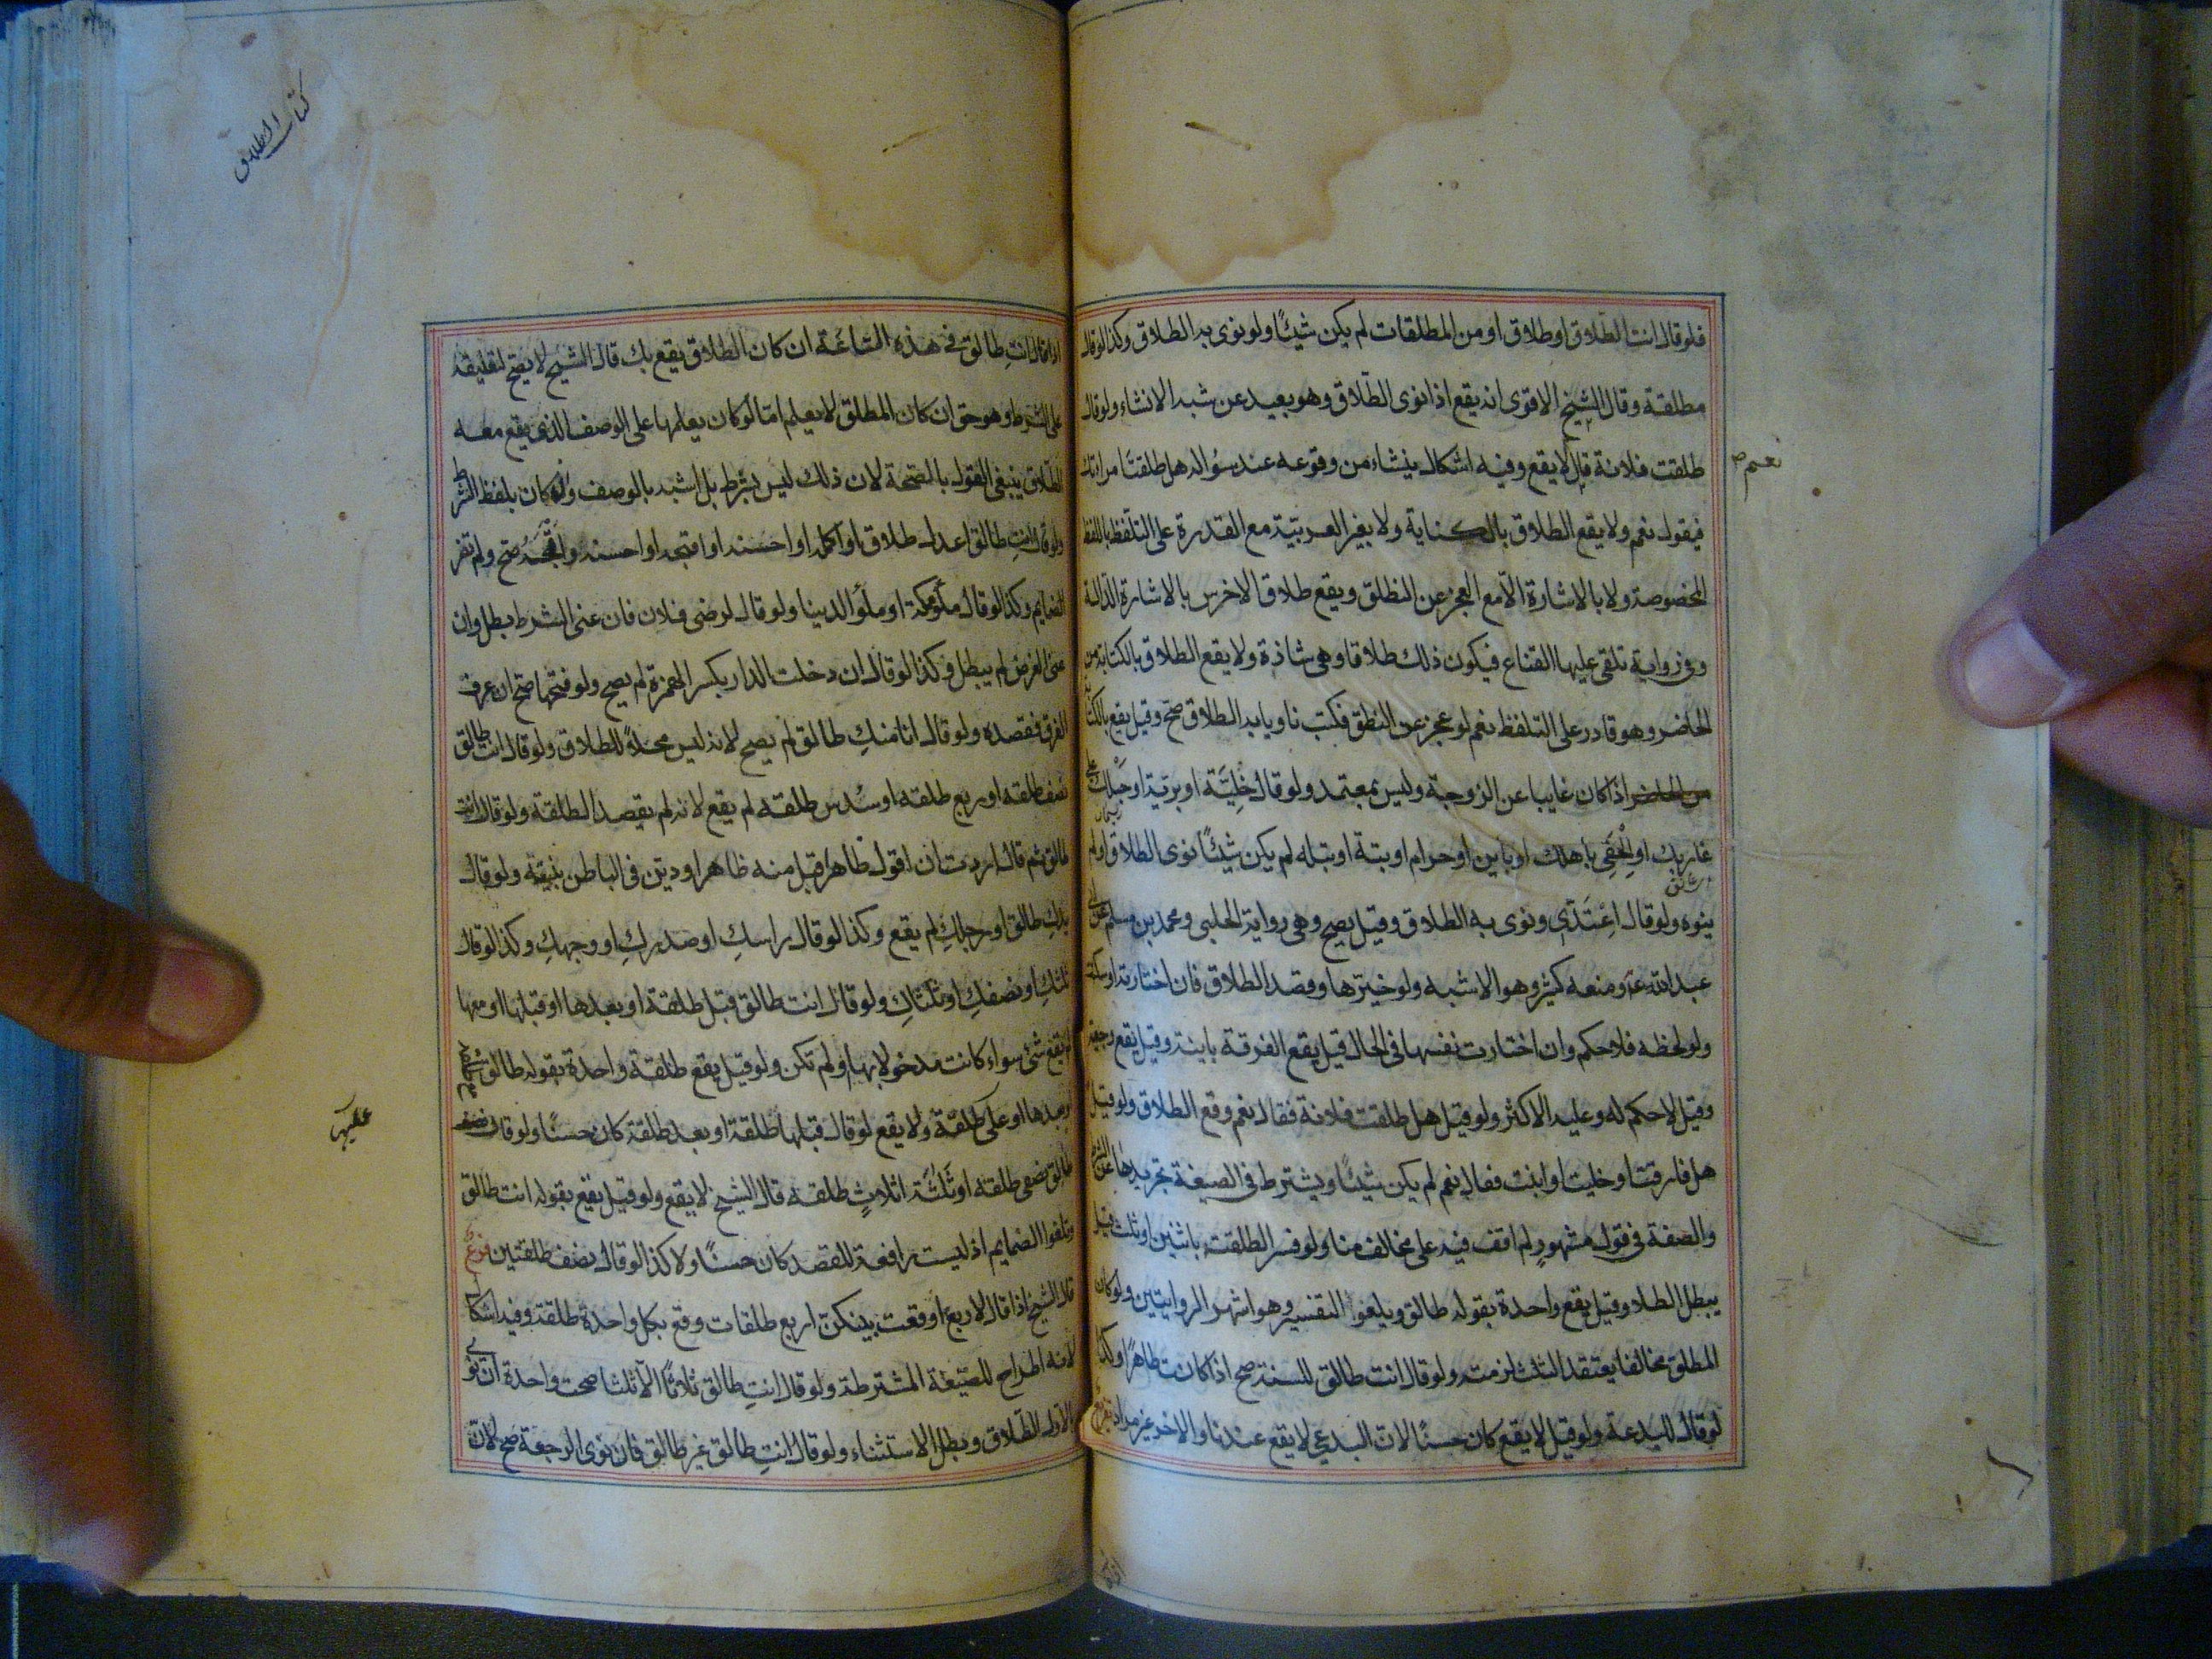 فلو قال انت الطلاق او طلاق او من المطلقات لم يكن شيئا ولو نوى به الطلاق وكذا لو قال
مطلقة وقال الشيخ الاقوى انه يقع اذا نوى الطلاق وهو بعيد عن شبه الانشاء ولو قال
طلقت فلانة قال لا يقع وفيه اشكال ينشاء من وقوعه عند سؤاله هل طلقت امراتك
نعم
فيقول نعم ولا يقع الطلاق بالكناية ولا بغير العربية مع القدرة على التلفظ باللفظ
المخصوصة ولا بالاشارة الا مع العجز عن النطلق ويقع طلاق الاخرس بالاشارة الدالة
وفي رواية تلقى عليها القناع فيكون ذلك طلاقا وهي شاذة ولا يقع الطلاق بالكتابة من
الحاضر وهو قادر على التلفظ نعم لو عجز عن النطق فكتب ناويا به الطلاق صح وقيل يقع بالكتابة
من الحاضر اذا كان غايبا عن الزوجة وليس بمعتمد ولو قال خلية او برية او حبلك على
غاربك او الحقي باهلك او باين او حرام او بتة او بتله لم يكن شيئا نوى الطلاق او لم
ينوه ولو قال اعتدي ونوى به الطلاق وقيل يصح وهي رواية الحلبي ومحمد بن مسلم عن ابي
عبد الله ع ومنعه كثير وهو الاشبه ولو خيرها وقصد الطلاق فان اختارته او سكتت
ولو لحظه فلا حكم وان اختارت نفسها في الحال قيل يقع الفرقة باينة وقيل يقع رجعية
وقيل لا حكم له وعليه الاكثر ولو قيل هل طلقت فلانة فقال نعم وقع الطلاق ولو قيل
هل فارقت او خليت او ابنت فقال نعم لم يكن شيئا ويشترط في الصيغة تجريدها عن الشرط
والصفة في قول مشهور لم اقف فيه على مخالف منا ولو فسر الطلقة باثنين او ثلث قيل
يبطل الطلاق وقيل يقع واحدة بقوله طالق ويلغوا التفسير وهو اشهر الروايتين ولو كان
المطلق مخالفا يعتقد الثلث لزمته ولو قال انت طالق للسنة صح اذا كانت طاهرا وكذا
لو قال للبدعة ولو قيل لا يقع كان حسنا لان البدعي لا يقع عندنا والاخر غير مراد تفريع
كتاب الطلاق
اذا قال انت طالق في هذه الساعة ان كان الطلاق يقع بك قال الشيخ لا يصح لتعليقه
على الشرط وهو حق ان كان المطلق لا يعلم اما لو كان يعلمها على الوصف الذي يقع معه
الطلاق ينبغي القول بالصحة لان ذلك ليس بشرط بل اشبه بالوصف وان كان بلفظ الشرط
ولو قال انت طالق اعدل طلاق او اكمله او احسنه او اقبحه او احسنه واقبحه صح ولم تضر
الضمايم وكذا لو قال ملؤ مكة او ملؤ الدنيا ولو قال لرضى فلان فان عنى الشرط بطل وان
عنى الغرض لم يبطل وكذا لو قال ان دخلت الدار بكسر الهمزة لم يصح ولو فتحها صح ان عرف
الفرق فقصده ولو قال انا منك طالق لم يصح لانه ليس محلا للطلاق ولو قال انت طالق
نصف طلقه او ربع طلقه او سدس طلقه لم يقع لانه لم يقصد الطلقة ولو قال انت
طالق ثم قال اردت ان اقول طاهر قبل منه ظاهرا ودين في الباطن بنيته ولو قال
يدك طالق او رجلك لم يقع وكذا لو قال راسك او صدرك او وجهك وكذا لو قال
ثلثك او نصفك او ثلثاك ولو قال انت طالق قبل طلقة او بعدها او قبلها او معها
لم يقع شئ سواء كانت مدخولا بها او لم تكن ولو قيل يقع طلقة واحدة بقوله طالق
عليها
وبعدها او على طلقة ولا يقع لو قال قبلها طلقة او بعد طلقة كان حسنا ولو قال
طالق نصفي طلقه او ثلثة اثلاث طلقه قال الشيخ لا يقع ولو قيل يقع بقوله انت طالق
وتلغوا الضمايم اذ ليست رافعة للقصد كان حسنا ولا كذا لو قال نصف طلقتين فرع
قال الشيخ اذا قال لاربع اوقعت بينكن اربع طلقات وقع بكل واحدة طلقة وفيه اشكال
لانه اطراح للصيغة المشترطة ولو قال انت طالق ثلاثا الا ثلثا صحت واحدة ان نوى
الاول الطلاق وبطل الاستثناء ولو قال انت طالق غير طالق فان نوى الرجعة صح لان